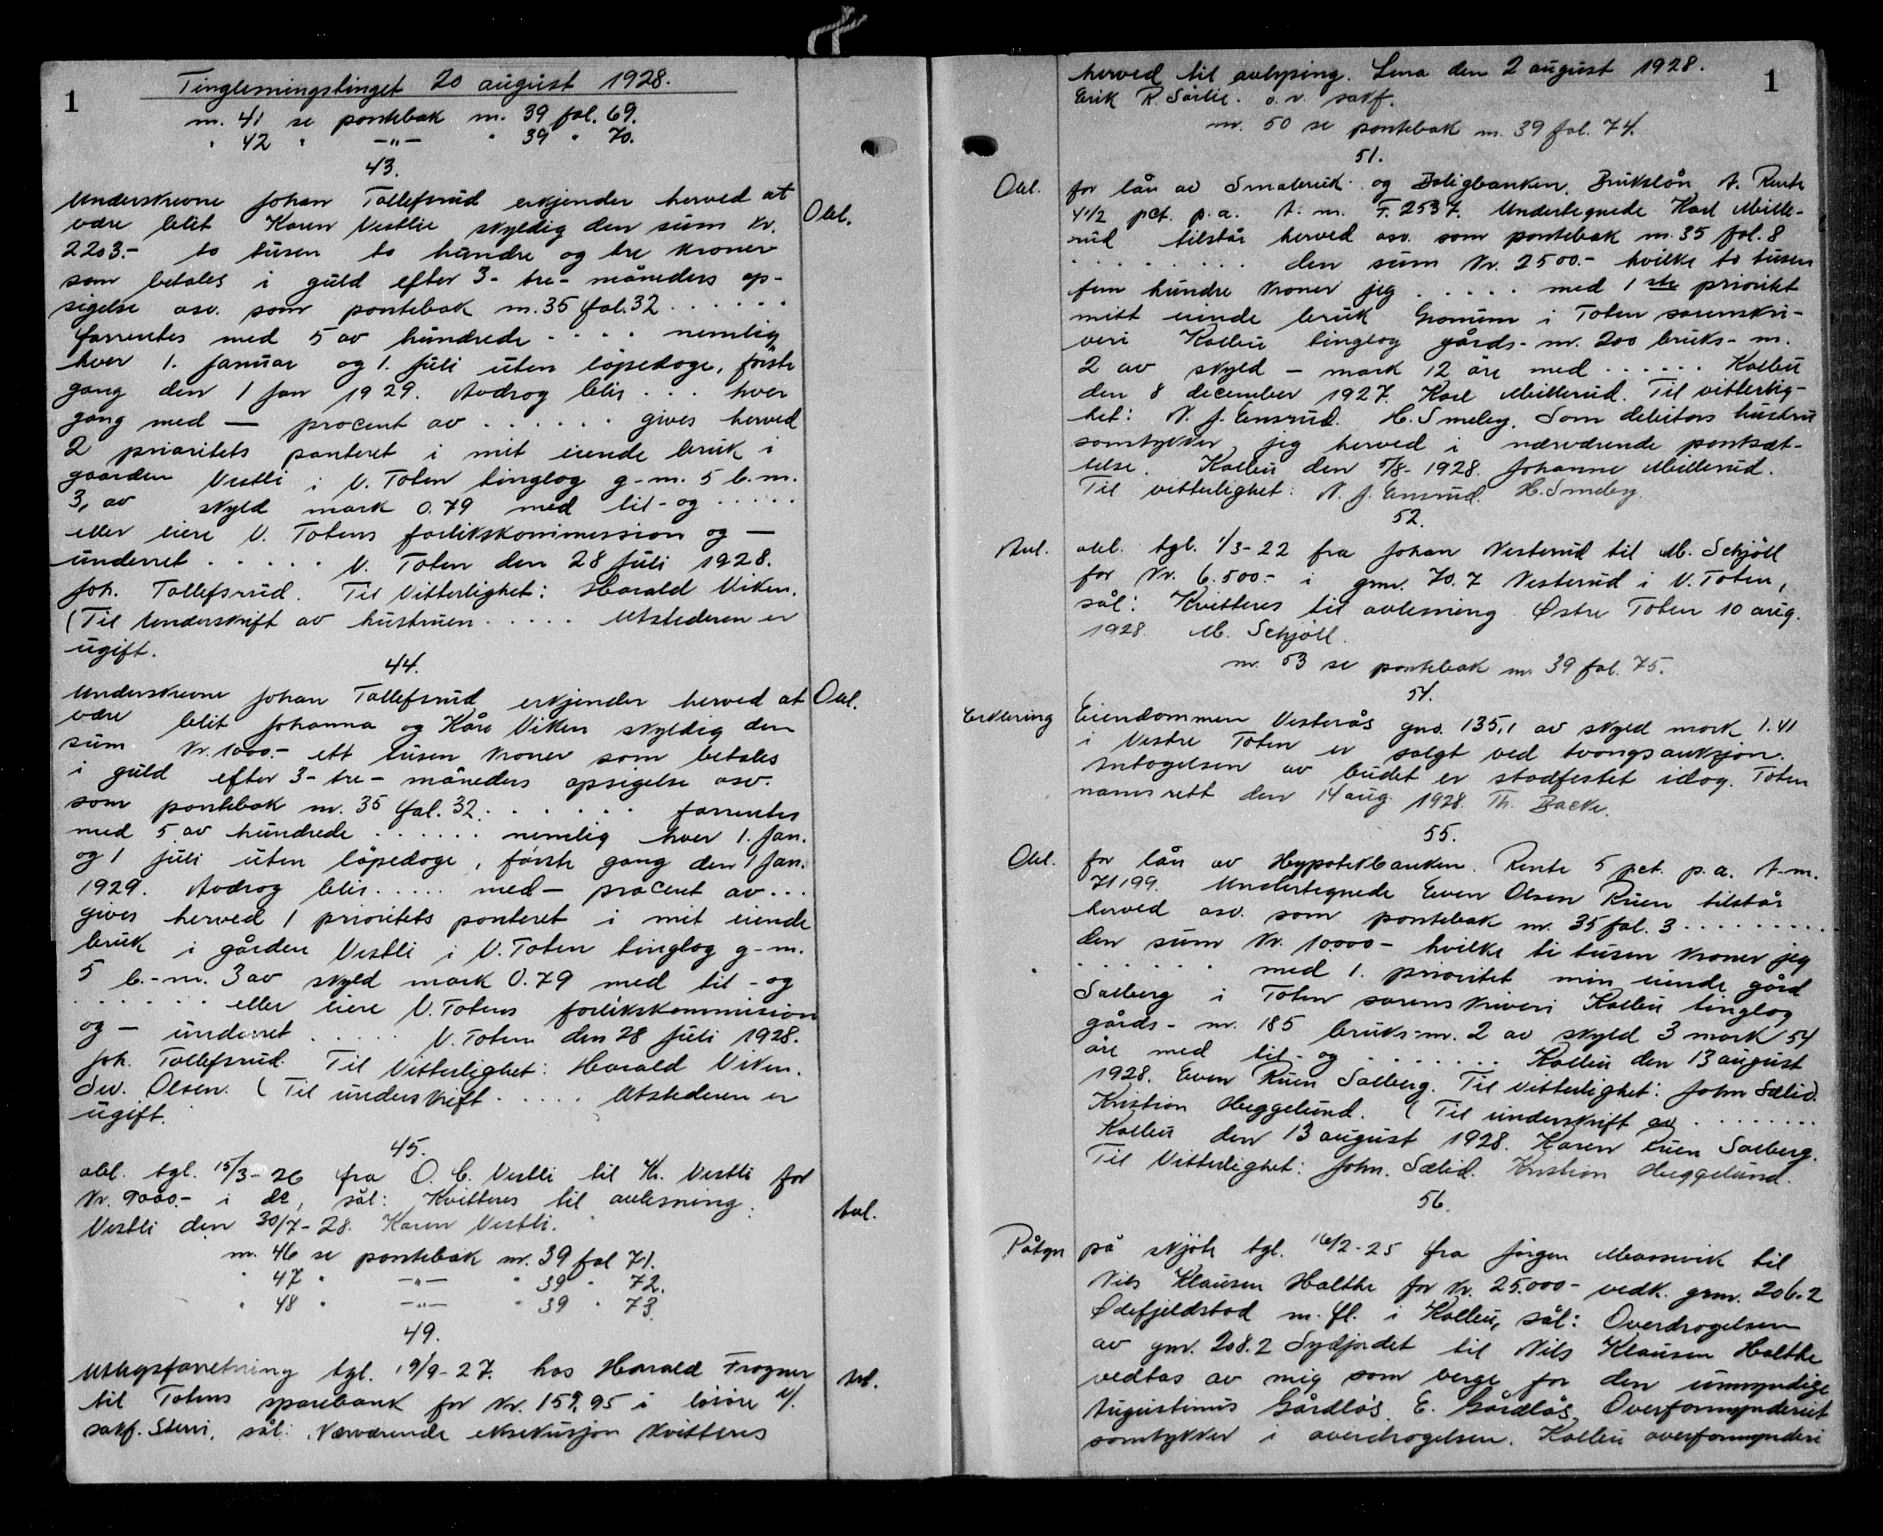 1
Tinglesningstinget 20 august 1928.
nr. 41 se pantebok nr. 39 fol. 69.
" 42 " -"- " 39 " 70.
43.
Underskrevne Johan Tollefsrud erkjender herved at
være blit Karen Vestlie skyldig den sum kr.
Obl.
2203.- to tusen to hundre og tre kroner
som betales i guld efter 3- tre- måneders op-
sigelse osv. som pantebok nr. 35 fol. 32 . . . . .
forrentes med 5 av hundrede . . . . nemlig
hver 1. januar og 1. juli uten løpedage, første
gang den 1 jan 1929. Avdrag blir . . . hver
gang med — procent av . . . . . . gives herved
2 prioritets panteret i mit eiende bruk i
gaarden Vestli i V. Toten tinglag g-nr. 5 b.nr.
3, av skyld mark 0.79 med til- og . . . . .
eller eiere V. Totens forlikskommission og —
underret . . . . . V. Toten den 28 juli 1928.
Joh. Tollefsrud. Til Vitterlighet: Harald Viken.
(Til underskrift av hustruen . . . . . Utstederen er
ugift.
44.
Underskrevne Johan Tollefsrud erkjender herved at
Obl.
være blit Johanna og Kåre Viken skyldig den
sum kr. 1000.- ett tusen kroner som betales
i guld efter 3- tre- måneders opsigelse osv.
som pantebok nr. 35 fol. 32. . . . . . . forrentes
med 5 av hundrede . . . . . . nemlig hver 1. jan.
og 1 juli uten løpedage, første gang den 1 jan.
1929. Avdrag blir . . . . . med — procent av . . .
gives herved 1 prioritets panteret i mit eiende
bruk i gården Vestli i V. Toten tinglag g-nr.
5 b.-nr. 3 av skyld mark 0.79 med til- og
. . . . . . eller eiere V. Totens forlikskommision
og — underret . . . . . V. Toten den 28 juli 1928.
Joh. Tollefsrud. Til Vitterlighet: Harald Viken.
Sev. Olsen. (Til underskrift . . . . . Utstederen er
ugift.
45.
obl. tgl. 15/3-26 fra O. C. Vestli til K. Vestli for
kr. 9000.- i do, sål: Kvitteres til avlesning.
Avl.
Vestli den 30/7-28. Karen Vestli.
nr. 46 se pantebok nr. 39 fol 71.
" 47 " -"- " 39 " 72.
" 48 " -"- " 39 " 73.
49.
Utlegsforretning tgl. 19/9-27. hos Harald Frogner
Avl.
til Totens sparebank for kr. 159,95 i løsøre v/.
sakf. Sterri, sål: Nærværende eksekusjon kvitteres
1
herved til avlysing. Lena den 2 august 1928.
Erik R. Sørlie. o.r. sakf.
nr. 50 se pantebok nr. 39 fol. 74.
51.
Obl.
for lån av Småbruk- og Boligbanken. Brukslån A. Rente
4 1/2 pct. p.a. A. nr. F. 2537. Undertegnede Karl Mille-
rud tilstår herved osv. som pantebok nr. 35 fol. 8
. . . . . . . . den sum kr. 2500.- hvilke to tusen
fem hundre kroner jeg . . . . . med 1ste prioritet
mitt eiende bruk Gronum i Toten sorenskri-
veri Kolbu tinglag gårds-nr. 200 bruks-nr.
2 av skyld — mark 12 øre med . . . . . . Kolbu
den 8 december 1927. Karl Millerud. Til vitterlig-
het: N. J. Ensrud. H. Smeby. Som debitors hustru
samtykker jeg herved i nærværende pantsæt-
telse. Kolbu den 5/8-1928. Johanne Millerud.
Til vitterlighet: N. J. Ensrud. H. Smeby.
52.
Avl.
obl. tgl. 1/3-22 fra Johan Vesterud til M. Schjöll
for kr. 6.500.- i gnr. 70.7 Vesterud i V. Toten,
sål: Kvitteres til avlesning. Østre Toten 10 aug.
1928. M. Schjöll.
nr. 53 se pantebok nr. 39 fol. 75.
54.
Erklering
Eiendommen Vesterås gnr. 135,1 av skyld mark 1.41
i Vestre Toten er solgt ved tvangsauksjon.
Antagelsen av budet er stadfestet idag. Toten
namsrett den 14 aug. 1928. Th. Backe.
55.
Obl.
for lån av Hypotekbanken. Rente 5 pct. p.a. A-nr.
71199. Undertegnede Even Olsen Ruen tilstår
herved osv. som pantebok nr. 35 fol. 3 . . . . . . . . .
den sum kr. 10000- hvilke ti tusen kroner jeg
. . . . . . med 1. prioritet min eiende gård
Solberg i Toten sorenskriveri Kolbu tinglag
gårds-nr. 185 bruks-nr. 2 av skyld 3 mark 54
øre med til- og . . . . . . . Kolbu den 13 august
1928. Even Ruen Solberg. Til Vitterlighet: John Sælid.
Kristian Heggelund. (Til underskrift av . . . . . . . .
Kolbu den 13 august 1928. Karen Ruen Solberg.
Til Vitterlighet: John. Sælid. Kristian Heggelund.
56.
Påtegn
på skjøte tgl. 16/2-25 fra Jørgen Maasvik til
Nils Klausen Holthe for kr. 25.000- vedk. gnr. 206.2
Ødefjeldstad m. fl. i Kolbu, sål: Overdragelsen
av gnr. 208.2 Sydjordet til Nils Klausen Holthe
vedtas av mig som verge for den umyndige
Augustinus Gårdløs. E. Gårdløs. Overformynderiet
samtykker i overdragelsen. Kolbu overformynderi